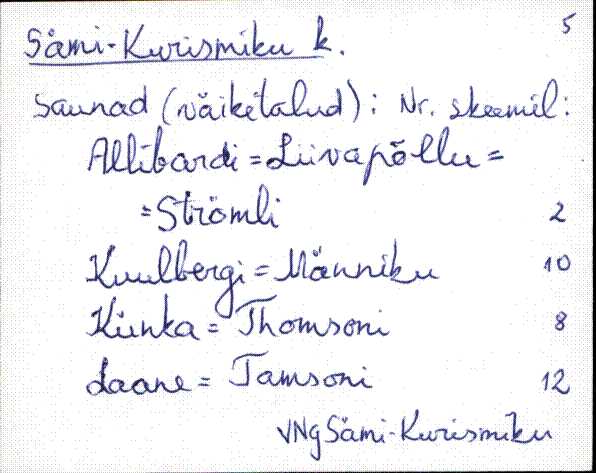 5
Sämi-Kurismiku k.
Saunad (väiketalud): Nr. skeemil:
Allibardi = Liivapõllu =
= Strömli 2
Kuulbergi = Männiku 10
Künka = Thomsoni 8
Laane = Tamsoni 12
VNg Sämi-Kurismiku